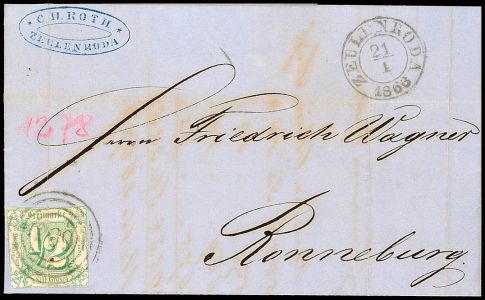 * C. H. ROTH *
ZEULENRODA
ZEULENRODA
21
1
1866
1278
Herrn Friedrich Wagner
Ronneburg.
Freimarke
1/2